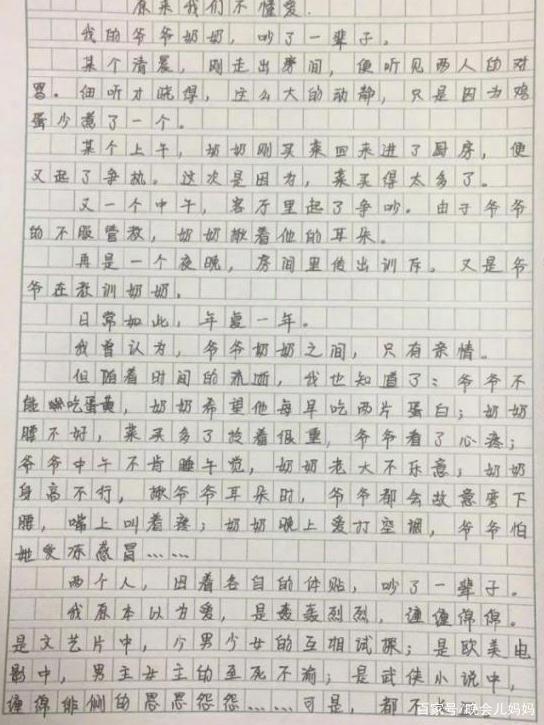 原来我们不懂爱.
我的爷爷奶奶，吵了一辈子。
某个清晨，刚走出房间，便听见两人的对
骂。细听才晓得，这么大的动静，只是因为鸡
蛋少煮了一个。
某个上午，奶奶刚买菜回来进了厨房，便
又起了争执。这次是因为，菜买得太多了。
又一个中午，客厅里起了争吵。由于爷爷
的不服管教，奶奶揪着他的耳朵。
再是一个夜晚，房间里传出训斥。又是爷
爷在教训奶奶。
日常如此，年复一年。
我曾认为，爷爷奶奶之间，只有亲情。
但随着时间的流逝，我也知道了：爷爷不
能吃蛋黄，奶奶希望他每早吃两片蛋白；奶奶
腰不好，菜买多了拎着很重，爷爷看了心疼；
爷爷中午不肯睡午觉，奶奶老大不乐意；奶奶
身高不行，揪爷爷耳朵时，爷爷都会故意弯下
腰，嘴上叫着疼；奶奶晚上爱打空调，爷爷怕
她受冻感冒……
两个人，因着各自的体贴，吵了一辈子。
我原本以为爱，是轰轰烈烈，缠缠绵绵。
是文艺片中，少男少女的互相试探；是欧美电
影中，男主女主的至死不渝；是武侠小说中，
缠绵悱恻的恩恩怨怨……可是，都不
百家号/晚会儿妈妈